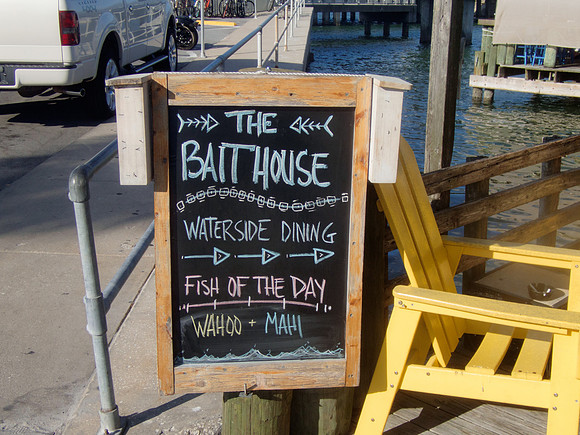 THE
BAIT HOUSE
WATERSIDE DINING
FISH OF THE DAY
WAHOO + MAHI